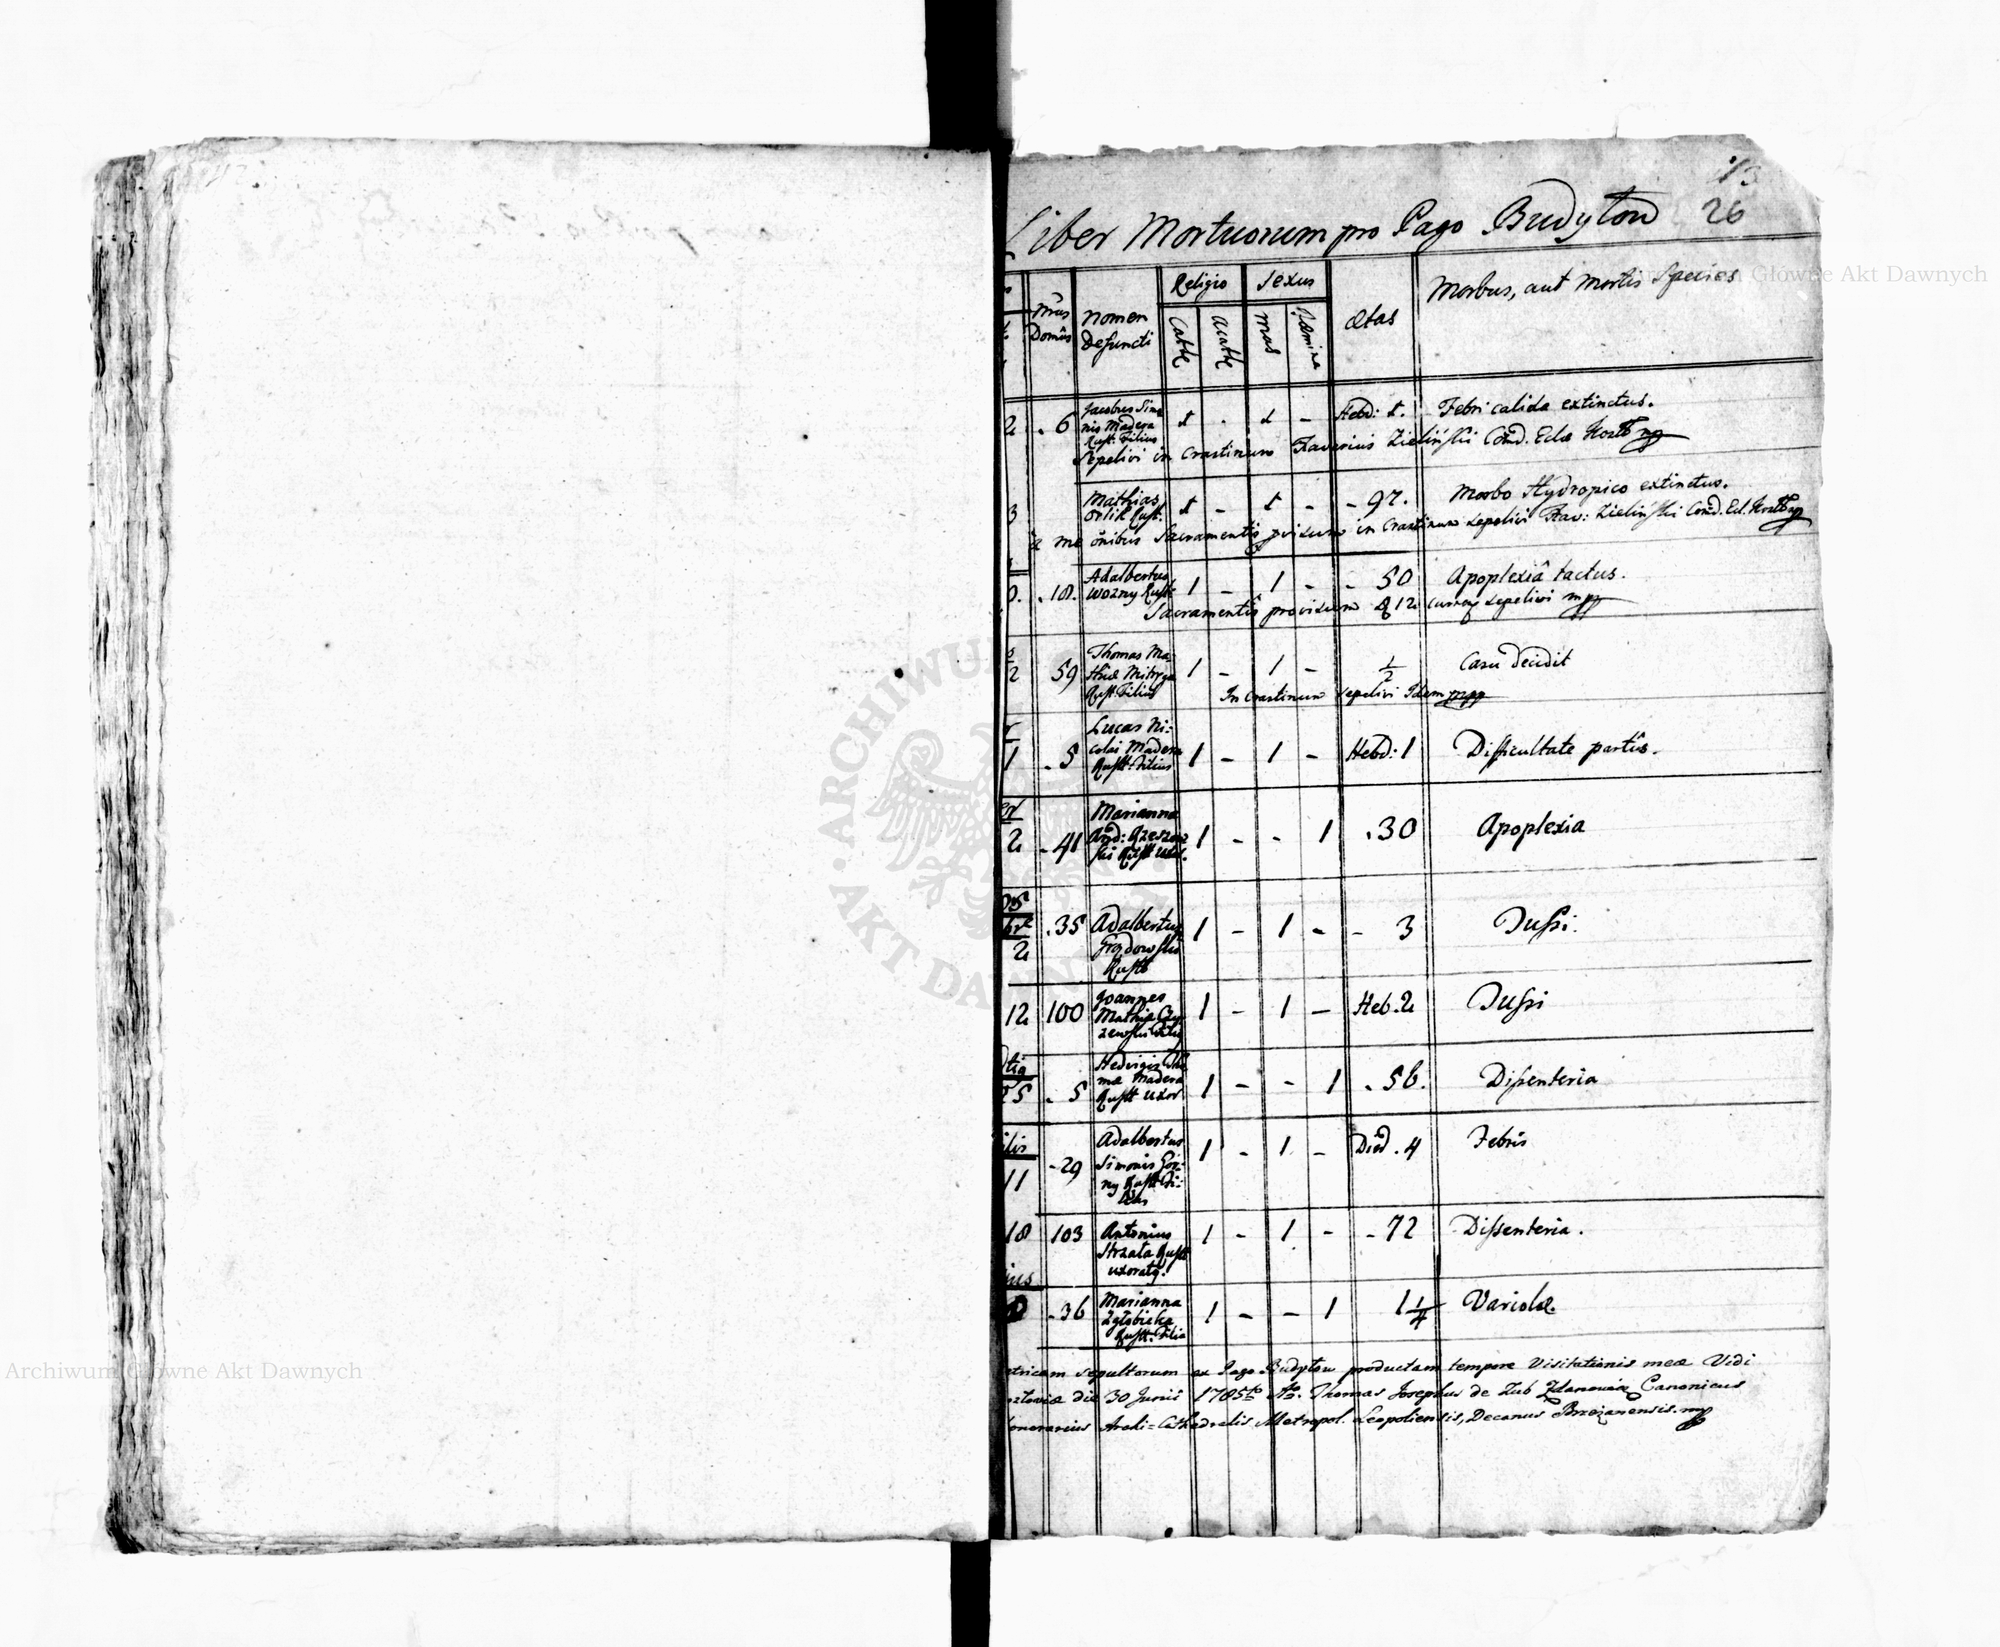 13
Liber Mortuorum pro Pago Budyłow 26
Nrus Domûs
Nomen Defuncti
Religio
Cath
Acath
Sexus
Mas
Fæmina
Ætas
Morbus, aut Mortis Species
2 . 6 Jacobus Simo
nis Madera
Rust. Filius 1 - 1 - Hebd: 1. Febri calida extinctus.
Sepelivi in Crastinum Xaverius Zieliński Comd. Eclæ Kozł mp
3 Mathias
Orlik Rust. 1 - 1 - - 97. Morbo Hydropico extinctus.
a me oñibus Sacramentis provisum in Crastinum sepelivi Xav: Zieliński Comd. Ecl. Kozł mp
. 18. Adalbertus
Wozny Rust 1 - 1 - - 50 Apoplexiâ tactus.
Sacramentis provisum 12 sepelivi mpp
2 59 Thomas Ma-
thiæ Mitręga
Rust. Filius 1 - 1 - 1/2 Casu decidit
In Crastinum sepelivi Idem mpp
1 - 5 Lucas Ni-
colai Madera
Rust. Filius 1 - 1 - Hebd: 1 Difficultate partûs.
2 - 41 Marianna
And: Rzeszow
ski Rust uxor. 1 - - 1 . 30 Apoplexia
2 . 35 Adalbertus
Rust 1 - 1 - - 3 Tussi.
12 100 Joannes
Mathiæ Czy
zewski Filius 1 - 1 - Heb. 2 Tussi
25 - 5 Hedvigis Tho
mæ Madera
Rust uxor 1 - - 1 . 56. Dissenteria
11 - 29 Adalbertus
Simonis Gór-
ny Rust Fi-
lius 1 - 1 - Died. 4 Febris
18 103 Antonius
Strzała Rust
uxoratq. 1 - 1 - - 72 Dissenteria.
- 36 Marianna
Zgłobicka
Rust. Filia 1 - - 1 1 1/4 Variolæ.
etricam sepultorum ex Pago Budyłow productam tempore Visitationis meæ Vidi
ozłoviæ die 30 Junii 1785to Ao. Thomas Josephus de Zub Zdanowicz Canonicus
onorarius Archi=Cathedralis Metropol. Leopoliensis, Decanus Brzezanensis. mp
Archiwum Główne Akt Dawnych
Główne Akt Dawnych
ARCHIWUM · AKT DAWN